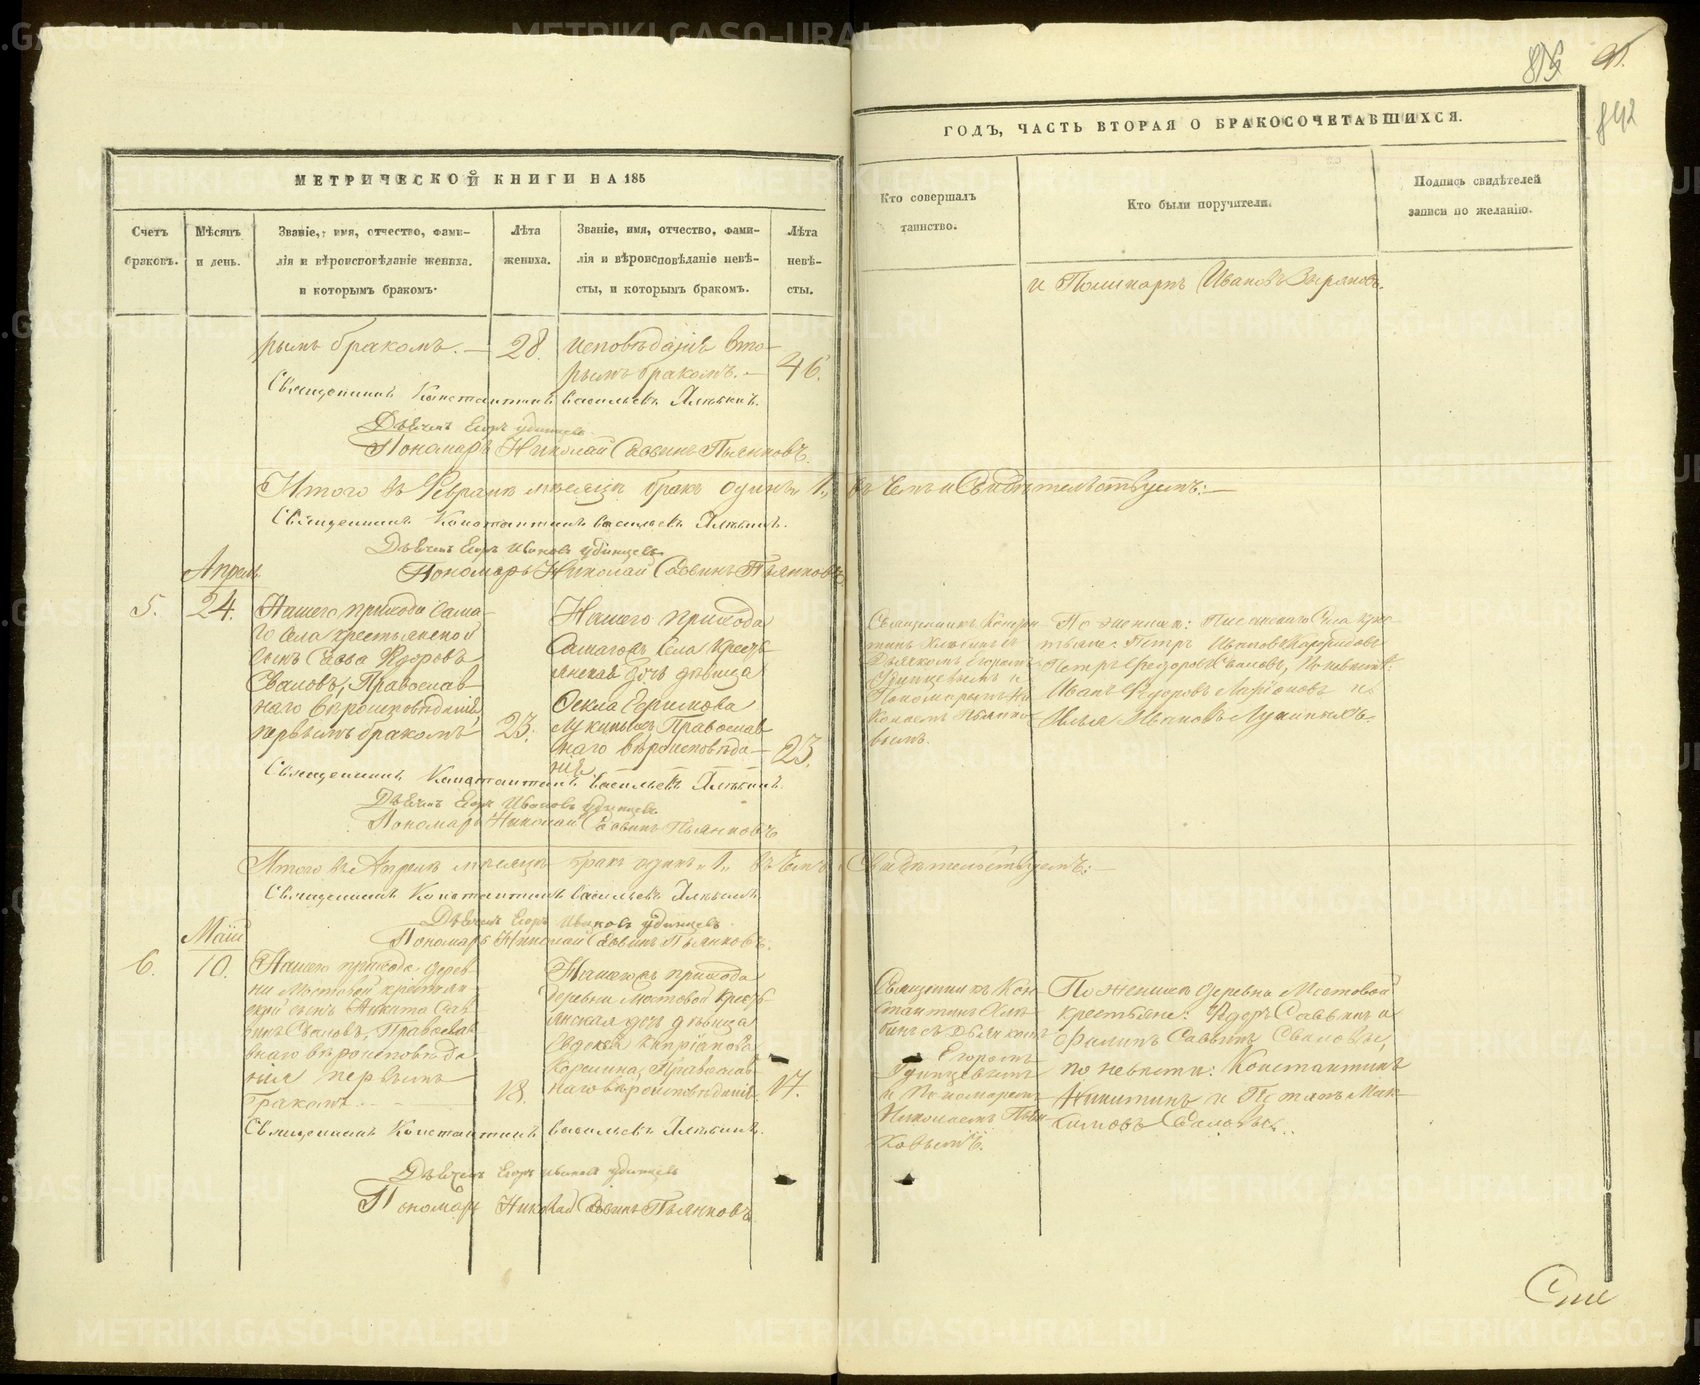 91.
842
МЕТРИЧЕСКОЙ КНИГИ НА 185
ГОДЪ, ЧАСТЬ ВТОРАЯ О БРАКОСОЧЕТАВШИХСЯ.
Счетъ браковъ.
Мѣсяцъ и день.
Званіе, имя, отчество, фами-
лія и вѣроисповѣданіе жениха.
и которымъ бракомъ.
Лѣта
жениха.
Званіе, имя, отчество, фами-
лія и вѣроисповѣданіе невѣ-
сты, и которымъ бракомъ.
Лѣта
невѣ-
сты.
Кто совершалъ
таинство.
Кто были поручители.
Подпись свидѣтелей
записи по желанію.
рымъ бракомъ. —
28.
исповѣданія вто-
рымъ бракомъ. —
46.
и Поликарпъ Ивановъ Зыряновъ.
Священникъ Константинъ Васильевъ
Дьячекъ Егоръ Удинцевъ
Пономарь Николай Саввинъ Пьянковъ.
Итого въ Февралѣ мѣсяцѣ бракъ одинъ „1„ въ чемъ и Свидѣтельствуемъ: —
Священникъ Константинъ Васильевъ
Дьячекъ Егоръ Ивановъ Удинцевъ
Пономарь Николай Саввинъ Пьянковъ
Апрель
5.
24.
Нашего прихода сама-
го села крестьянской
сынъ Савва Ѳедоровъ
Сваловъ, Православ
наго вѣроисповѣданія,
первымъ бракомъ
23.
Нашего прихода
Самагожъ села крестъ-
янская дочь девица
Ѳекла
Православ
наго вѣроисповѣда-
нія
23.
Священникъ Констан
тинъ съ
Дьячкомъ Егоромъ
Удинцевымъ и
Пономаремъ Ни
колаемъ Пьянко-
вымъ.
По женихѣ: села кре-
стьяне: Петръ Ивановъ
Петръ Ѳедоровъ Сваловъ, по невѣстѣ:
Иванъ Ѳедоровъ Ларіоновъ и
Илья Ивановъ
Священникъ Константинъ Васильевъ
Дьячекъ Егоръ Ивановъ Удинцевъ
Пономарь Николай Саввинъ Пьянковъ
Итого въ Апрелѣ мѣсяцѣ бракъ одинъ „1„ въ чемъ и Свидѣтельствуемъ: —
Священникъ Константинъ Васильевъ
Дьячекъ Егоръ Ивановъ Удинцевъ
Пономарь Николай Саввинъ Пьянковъ.
Маій
6.
10.
Нашего прихода дерев-
ни Мостовой крестьян
ской сынъ Никита Сав
винъ Сваловъ, Православ
наго вѣроисповѣда
нія первымъ
бракомъ. —
18.
Нашегожъ прихода
деревни Мостовой крестъ-
янская дочь девица
Евдокія Кипріянова
Православ
наго вѣроисповѣданія.
17.
Священникъ Кон-
стантинъ
съ Дьячкомъ
Егоромъ
Удинцевымъ
и Пономаремъ
Николаемъ Пьян
ковымъ.
По женихѣ деревни Мостовой
крестьяне: Ѳедоръ Саввинъ и
Филипъ Саввинъ Сваловы,
по невѣстѣ: Константинъ
Никитинъ и Потапъ Мак-
симовъ Сваловы.
Священникъ Константинъ Васильевъ
Дьячекъ Егоръ Ивановъ Удинцевъ
Пономарь Николай Саввинъ Пьянковъ